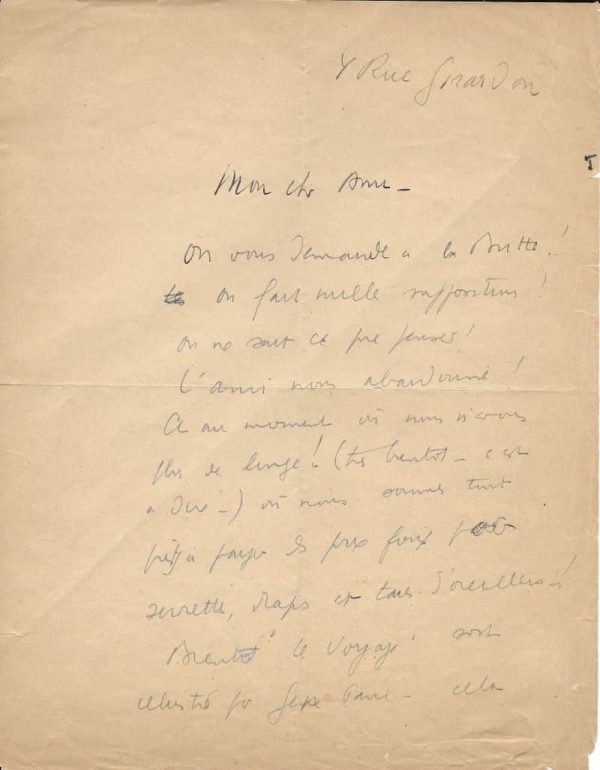 4 Rue Girardon
Mon cher Ami –
On vous demande à la Butte !
on fait mille suppositions !
on ne sait ce que penser !
L'ami nous abandonne !
Et au moment où nous n'avons
plus de linge ! (très bientôt – c'est
à dire –) où nous sommes tout
prêts à payer les prix fous pour
serviettes, draps et taies d'oreillers – !
Bientôt "le Voyage" sort
par – cela